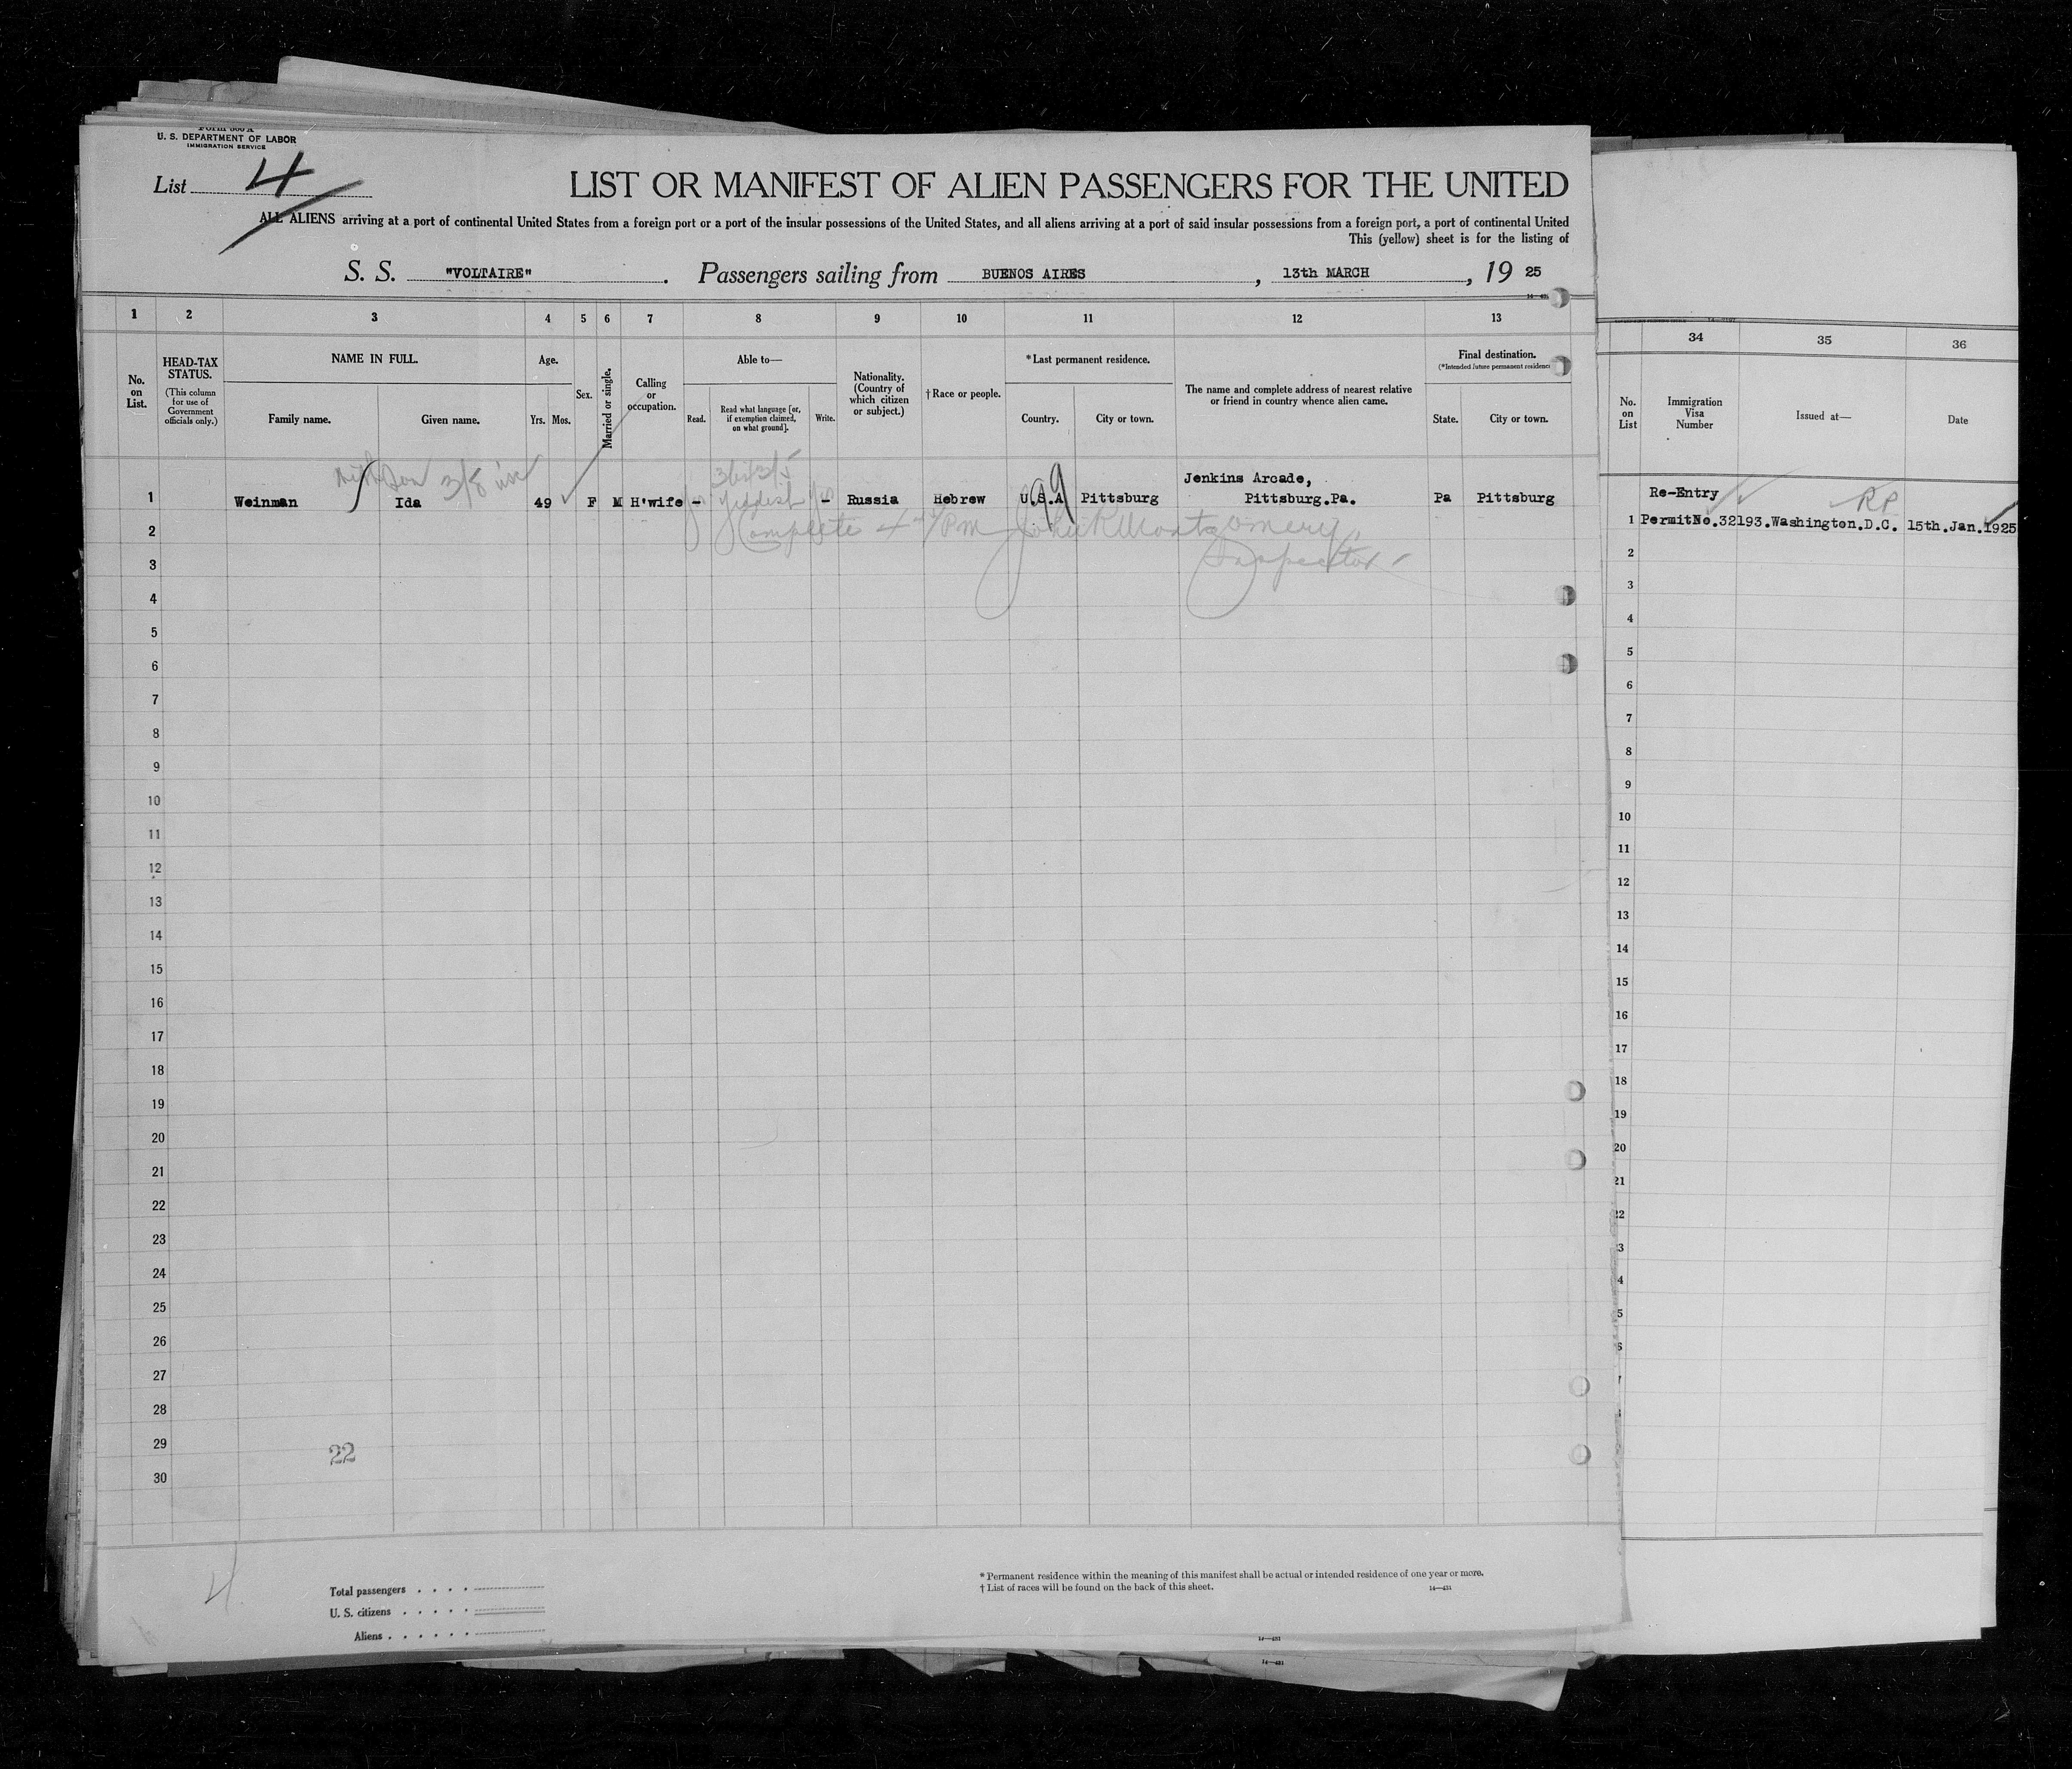 U. S. DEPARTMENT OF LABOR
IMMIGRATION SERVICE
List 4
LIST OR MANIFEST OF ALIEN PASSENGERS FOR THE UNITED
ALL ALIENS arriving at a port of continental United States from a foreign port or a port of the insular possessions of the United States, and all aliens arriving at a port of said insular possessions from a foreign port, a port of continental United
This (yellow) sheet is for the listing of
S. S. "VOLTAIRE". Passengers sailing from BUENOS AIRES, 13th MARCH, 19 25
1 2 3 4 5 6 7 8 9 10 11 12 13
No. on List.
HEAD-TAX STATUS.
(This column for use of Government officials only.)
NAME IN FULL.
Family name. Given name.
Age.
Yrs. Mos.
Sex.
Married or single.
Calling or occupation.
Able to—
Read. Read what language [or, if exemption claimed, on what ground]. Write.
Nationality. (Country of which citizen or subject.)
† Race or people.
*Last permanent residence.
Country. City or town.
The name and complete address of nearest relative or friend in country whence alien came.
Final destination.
(*Intended future permanent residence
State. City or town.
34 35 36
No. on List
Immigration Visa Number
Issued at—
Date
Jenkins Arcade,
1 Weinman Ida 49 F M H'wife - Yiddish - Russia Hebrew U.S.A Pittsburg Pittsburg.Pa. Pa Pittsburg
Complete John R Montgomery,
Inspector
Re-Entry RP
1 PermitNo.32193.Washington.D.C. 15th.Jan.1925
2
3
4
5
6
7
8
9
10
11
12
13
14
15
16
17
18
19
20
21
22
23
24
25
26
27
28
29
30
22
2
3
4
5
6
7
8
9
10
11
12
13
14
15
16
17
18
19
20
21
22
4
Total passengers . . . .
U. S. citizens . . . . .
Aliens . . . . . .
* Permanent residence within the meaning of this manifest shall be actual or intended residence of one year or more.
† List of races will be found on the back of this sheet.
14—451
14—451
14—451